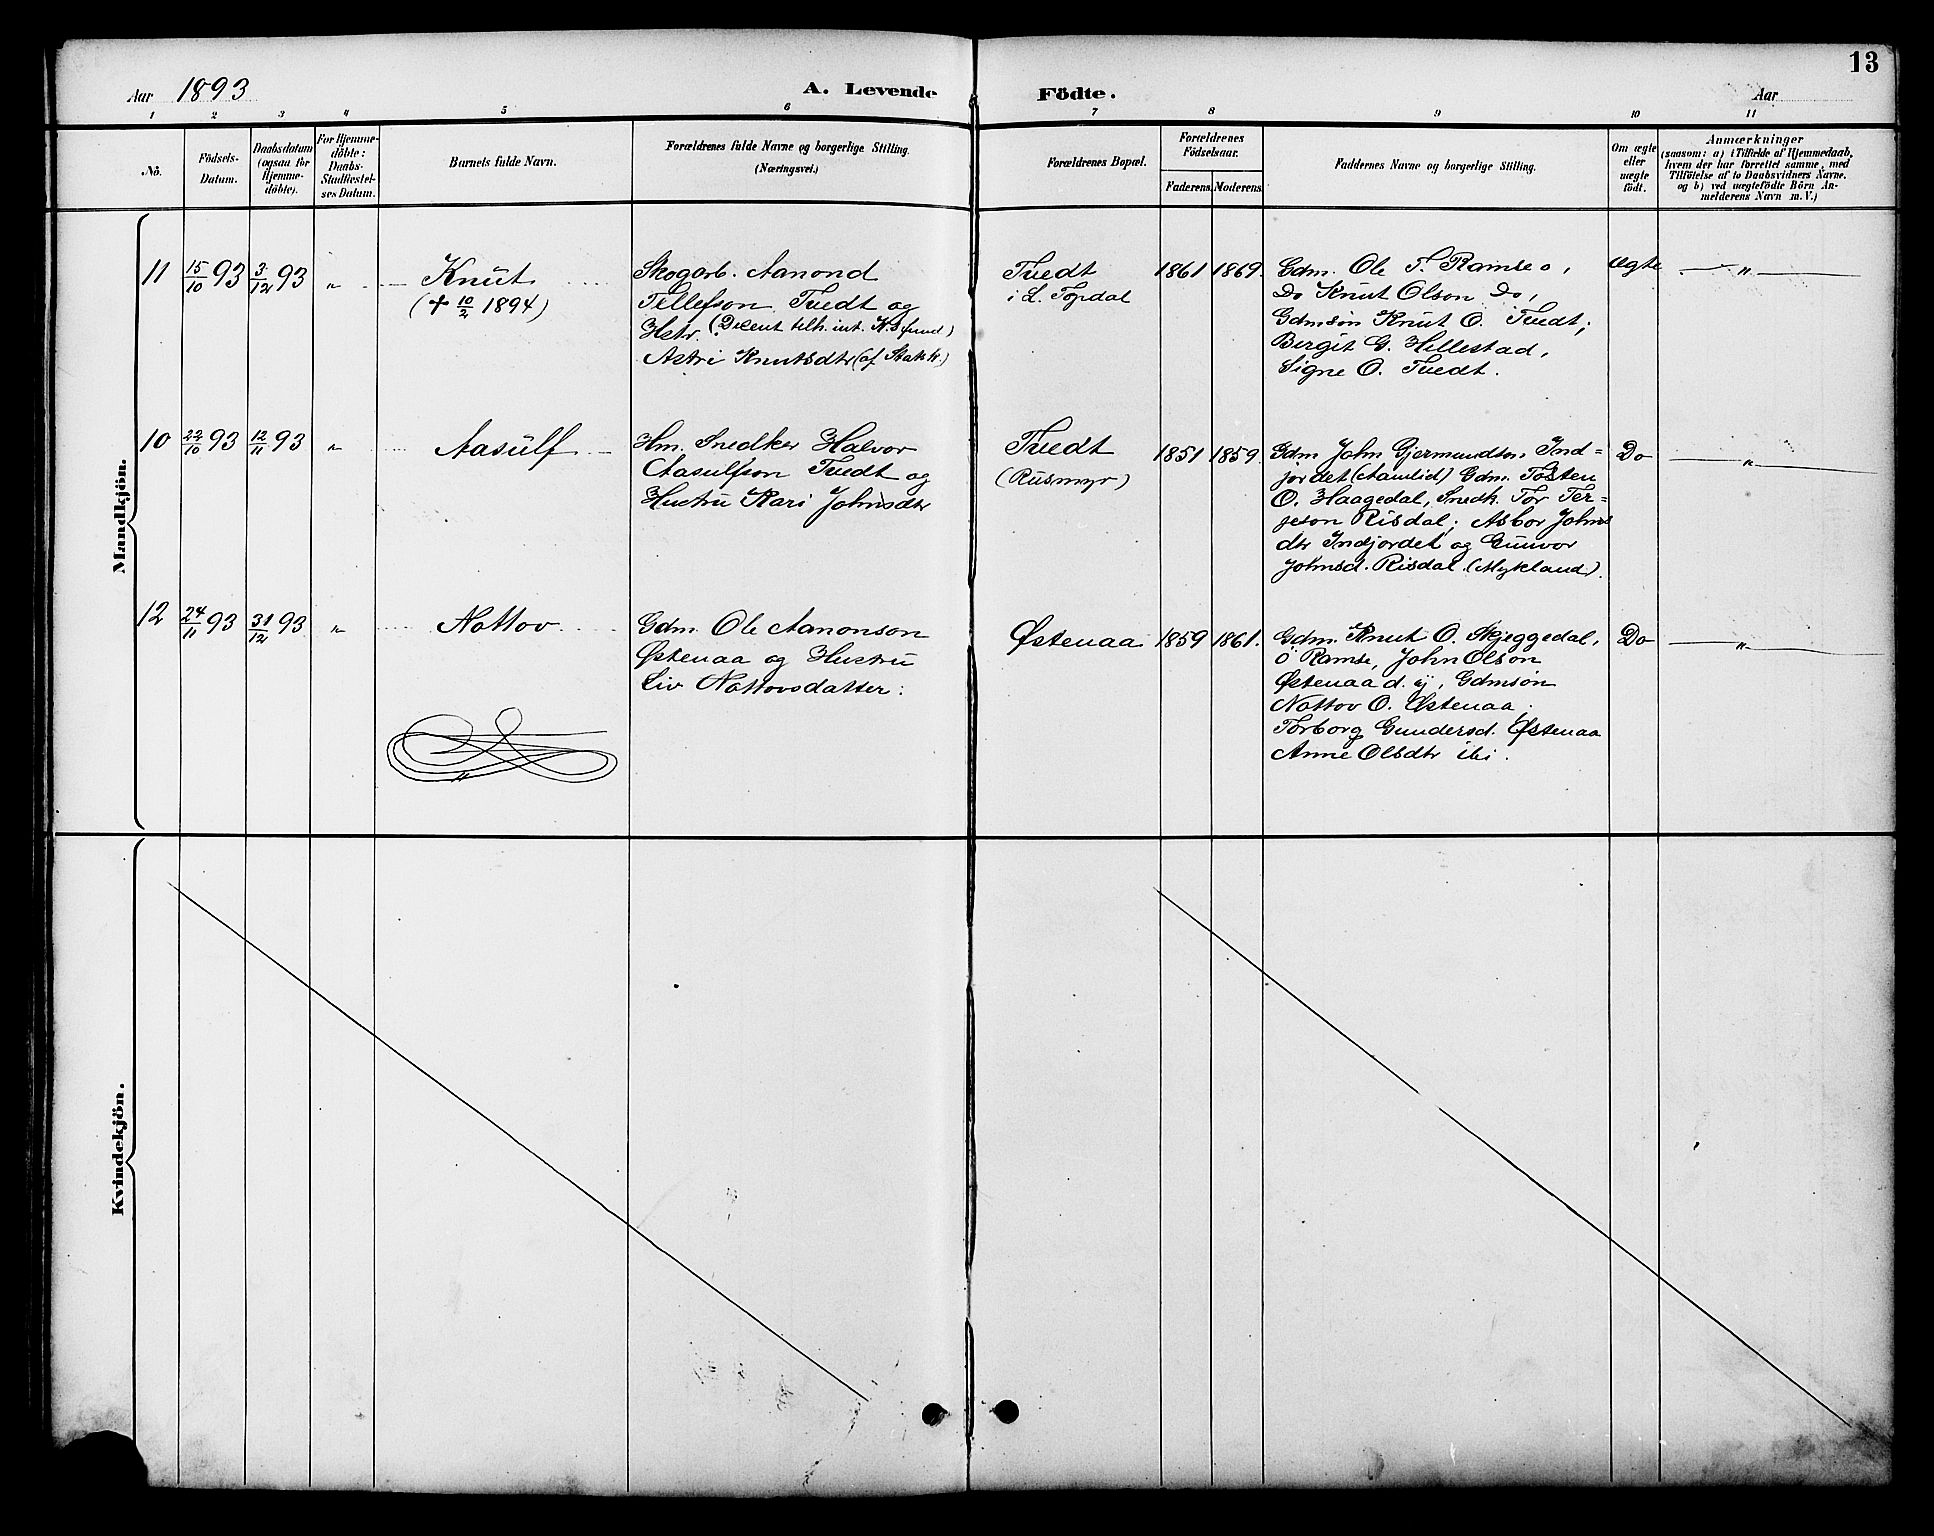 13
Aar 1893 A. Levende Födte. Aar
1 2 3 4 5 6 7 8 9 10 11
No. Födsels-Datum. Daabsdatum (ogsaa for Hjemmedöbte). For Hjemmedöbte: Daabs-Stadfæstelses Datum. Barnets fulde Navn. Forældrenes fulde Navne og borgerlige Stilling. (Næringsvei.) Forældrenes Bopæl. Forældrenes Födselsaar. Faderens. Moderens. Faddernes Navne og borgerlige Stilling. Om ægte eller uægte födt. Anmærkninger (saasom: a) i Tilfælde af Hjemmedaab, hvem der har forrettet samme, med Tilföielse af to Daabsvidners Navne. og b) ved uægtefödte Börn Anmelderens Navn m.V.)
Mandkjön.
11 15/10 93 3/12 93 „ Knut
(+ 10/2 1894)
Skogarb. Aanond
Tellefson Tvedt og
Hstr. (Docent telh. int. K.Sfund)
Astri Knutsdtr (af Statsk.)
Tvedt
i L. Topdal
1861 1869.
Gdm. Ole T. Ramse o,
Do Knut Olson Do,
Gdmsön Knut O. Tvedt;
Birgit G. Hillestad,
Signe O. Tvedt.
Ægte „
10 22/10 93 12/11 93 „ Aasulf
Hm. Snedker Halvor
Aasulfson Tvedt og
Hustru Kari Johnsdtr
Tvedt
(Rusmyr)
1851 1859.
Gdm John Gjermundson Ind=
jordet (Aamlid) Gdm. Tosten
O. Haagedal, Snedk. Tor Ter=
jeson Risdal; Asbor Johns
dtr Indjordet og Gunvor
Johnsd. Risdal (Mykland).
Do „
12 24/11 93 31/12 93 „ Nottov
Gdm. Ole Aanonson
Østenaa og Hustru
Liv Nottovsdatter:
Østenaa 1859 1861.
Gdm. Knut O. Skjeggedal,
Ö Ramse, John Olson
Østenaa d. ÿ, Gdmsön
Nottov O. Østenaa;
Torborg Gundersd. Østenaa
Anne Olsdtr ibi.
Do „
Kvindekjön.